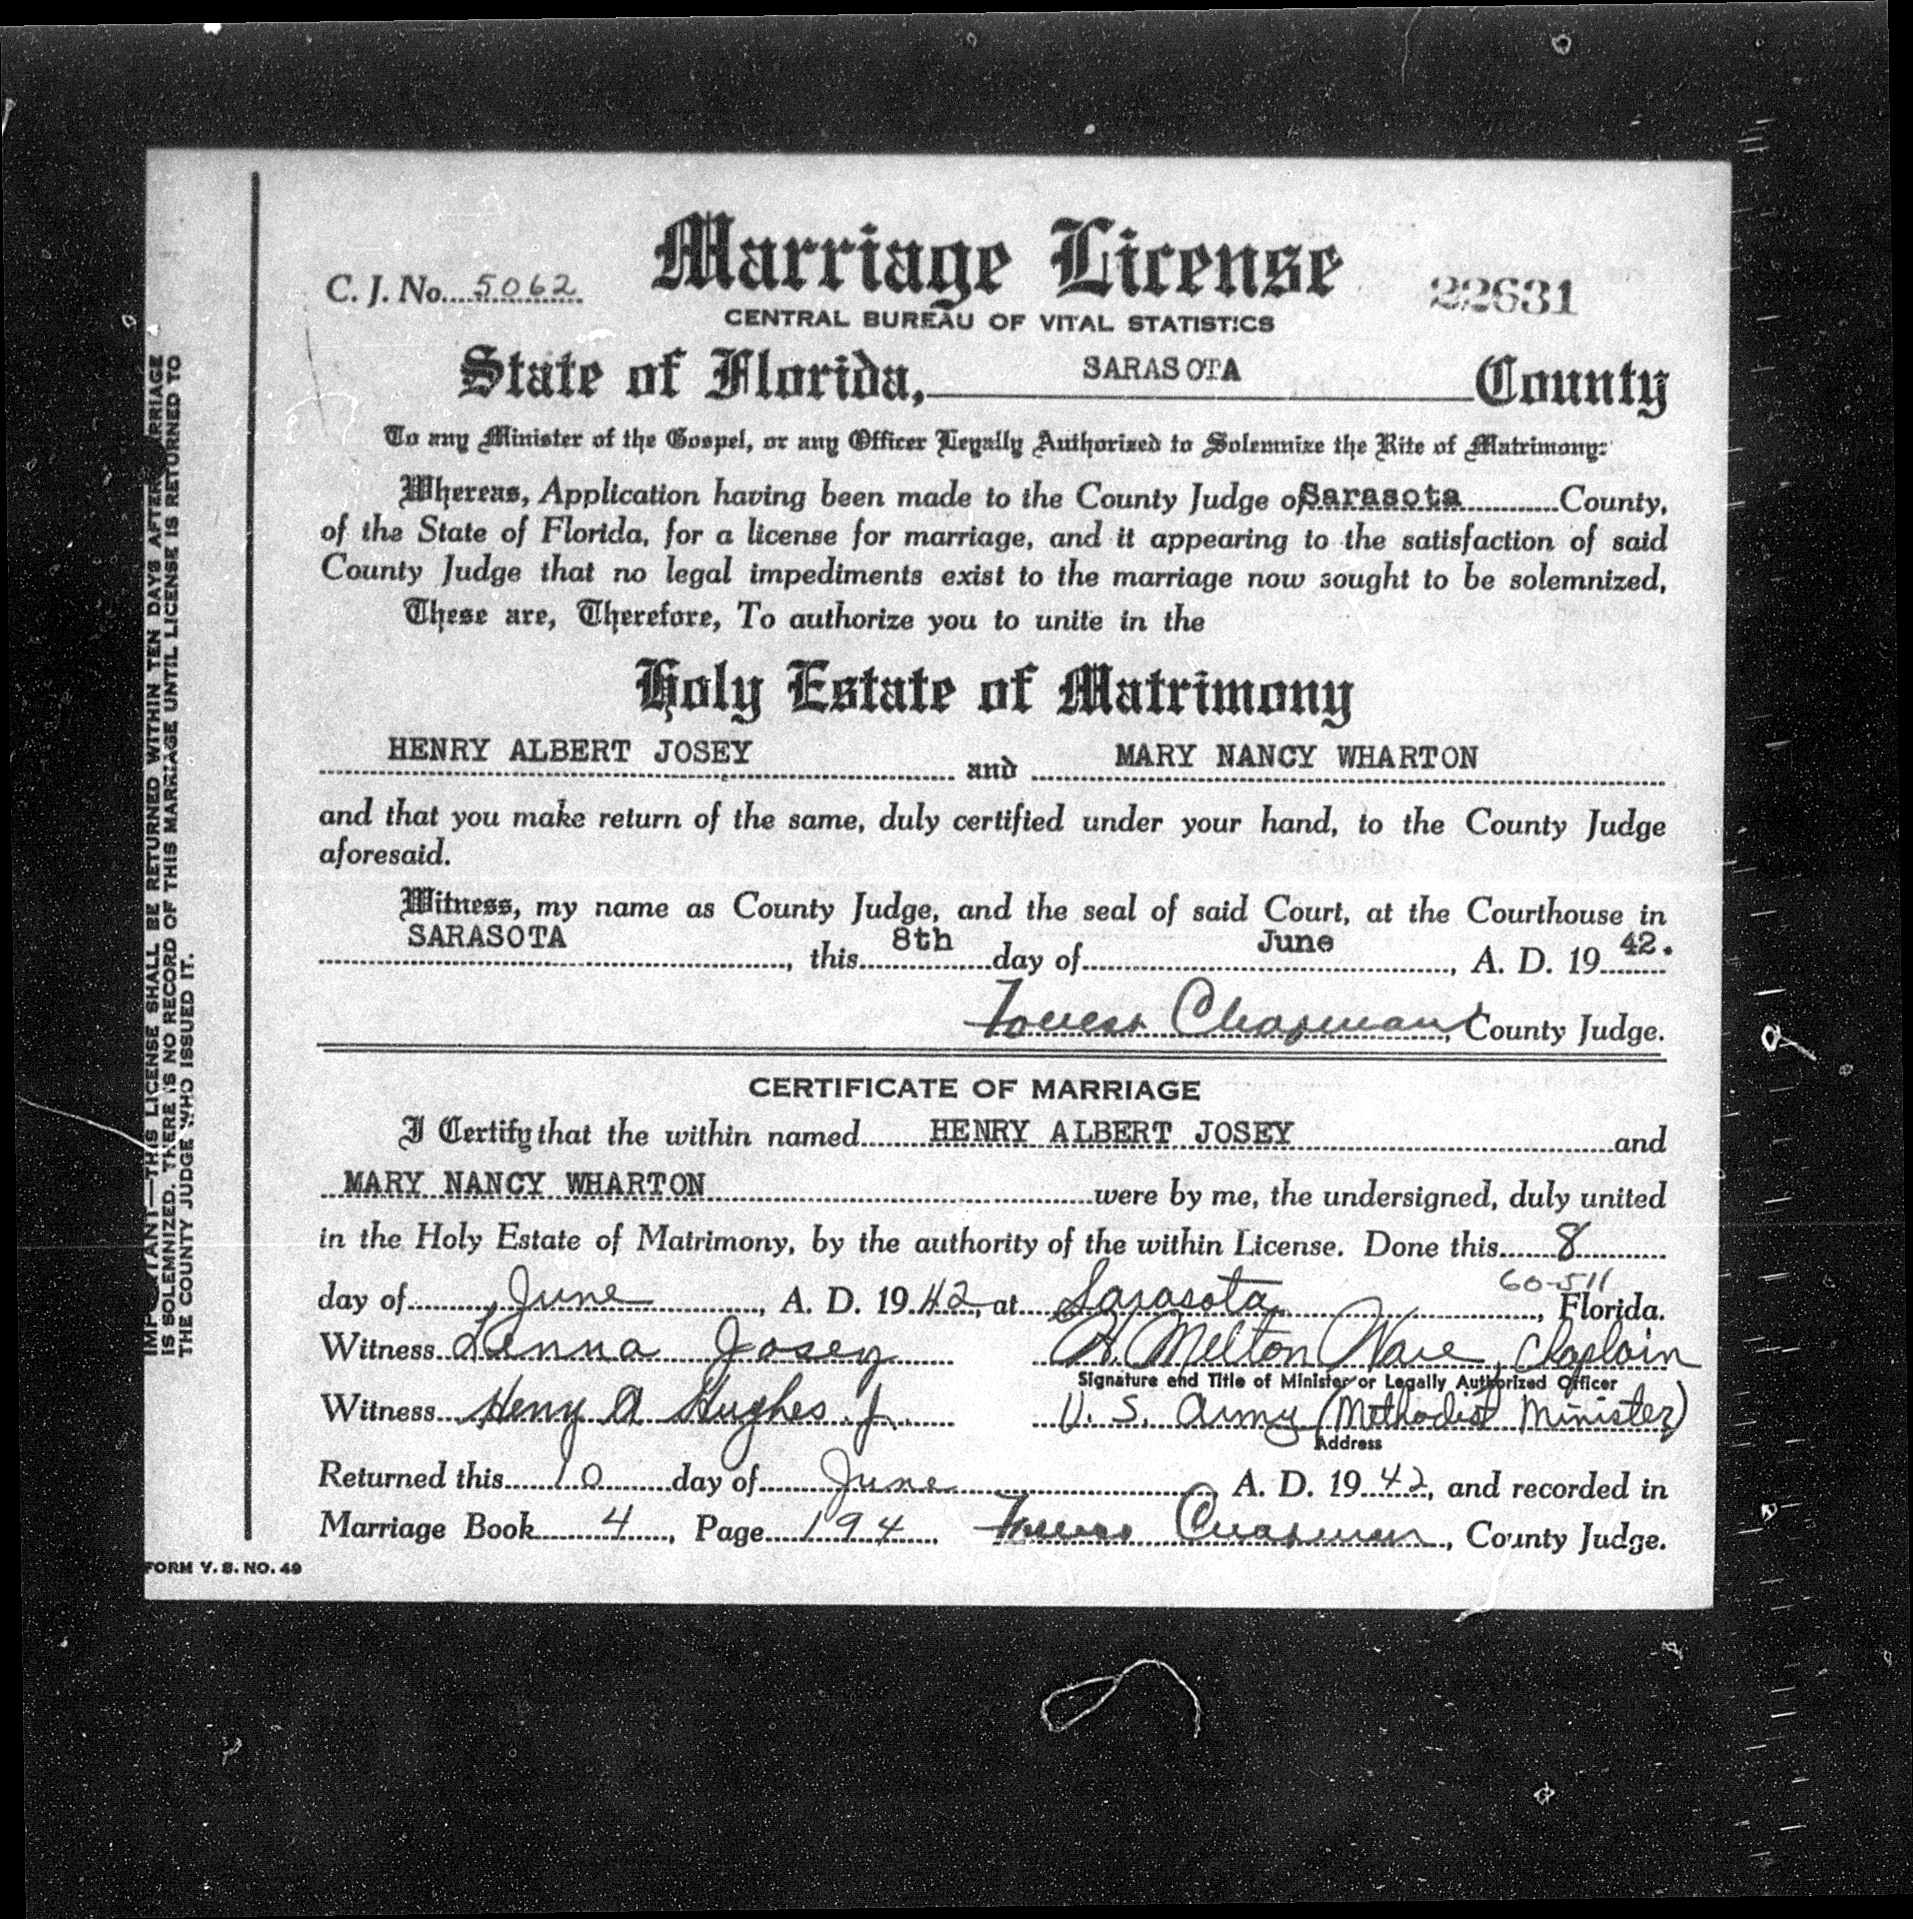 Marriage License
C. J. No. 5062
22631
CENTRAL BUREAU OF VITAL STATISTICS
State of Florida, SARASOTA County
To any Minister of the Gospel, or any Officer Legally Authorized to Solemnize the Rite of Matrimony:
Whereas, Application having been made to the County Judge of Sarasota County,
of the State of Florida, for a license for marriage, and it appearing to the satisfaction of said
County Judge that no legal impediments exist to the marriage now sought to be solemnized,
These are, Therefore, To authorize you to unite in the
Holy Estate of Matrimony
HENRY ALBERT JOSEY and MARY NANCY WHARTON
and that you make return of the same, duly certified under your hand, to the County Judge
aforesaid.
Witness, my name as County Judge, and the seal of said Court, at the Courthouse in
SARASOTA, this 8th day of June, A. D. 19 42.
Forrest Chapman, County Judge.
CERTIFICATE OF MARRIAGE
I Certify that the within named HENRY ALBERT JOSEY and
MARY NANCY WHARTON were by me, the undersigned, duly united
in the Holy Estate of Matrimony, by the authority of the within License. Done this 8
60-511
day of June, A. D. 19 42, at Sarasota, Florida.
Witness Josey H. Melton Ware, Chaplain
Signature and Title of Minister or Legally Authorized Officer
Witness Henry A Hughes Jr. U. S. Army (Methodist Minister)
Address
Returned this 10 day of June A. D. 19 42, and recorded in
Marriage Book 4, Page 194, Forrest Chapman, County Judge.
FORM V. S. NO. 49
IMPORTANT—THIS LICENSE SHALL BE RETURNED WITHIN TEN DAYS AFTER MARRIAGE
IS SOLEMNIZED. THERE IS NO RECORD OF THIS MARRIAGE UNTIL LICENSE IS RETURNED TO
THE COUNTY JUDGE WHO ISSUED IT.